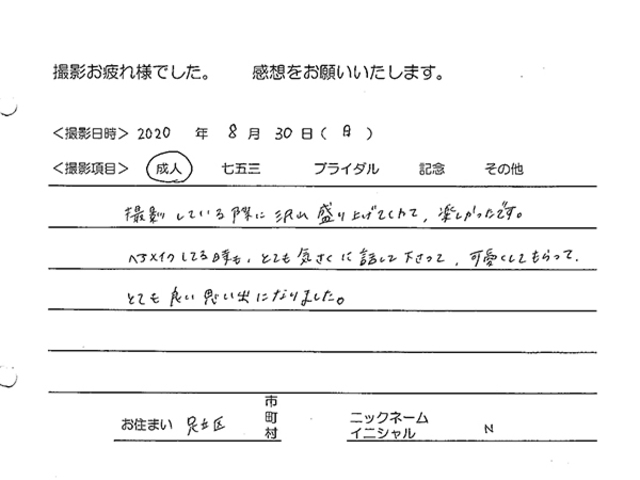 撮影お疲れ様でした。 感想をお願いいたします。
<撮影日時> 2020 年 8 月 30 日 ( 日 )
<撮影項目> 成人 七五三 ブライダル 記念 その他
撮影している際に沢山盛り上げてくれて、楽しかったです。
ヘアメイクしてる時も、とても気さくに話して下さって、可愛くしてもらって、
とても良い思い出になりました。
お住まい 足立区 市町村 ニックネーム イニシャル N